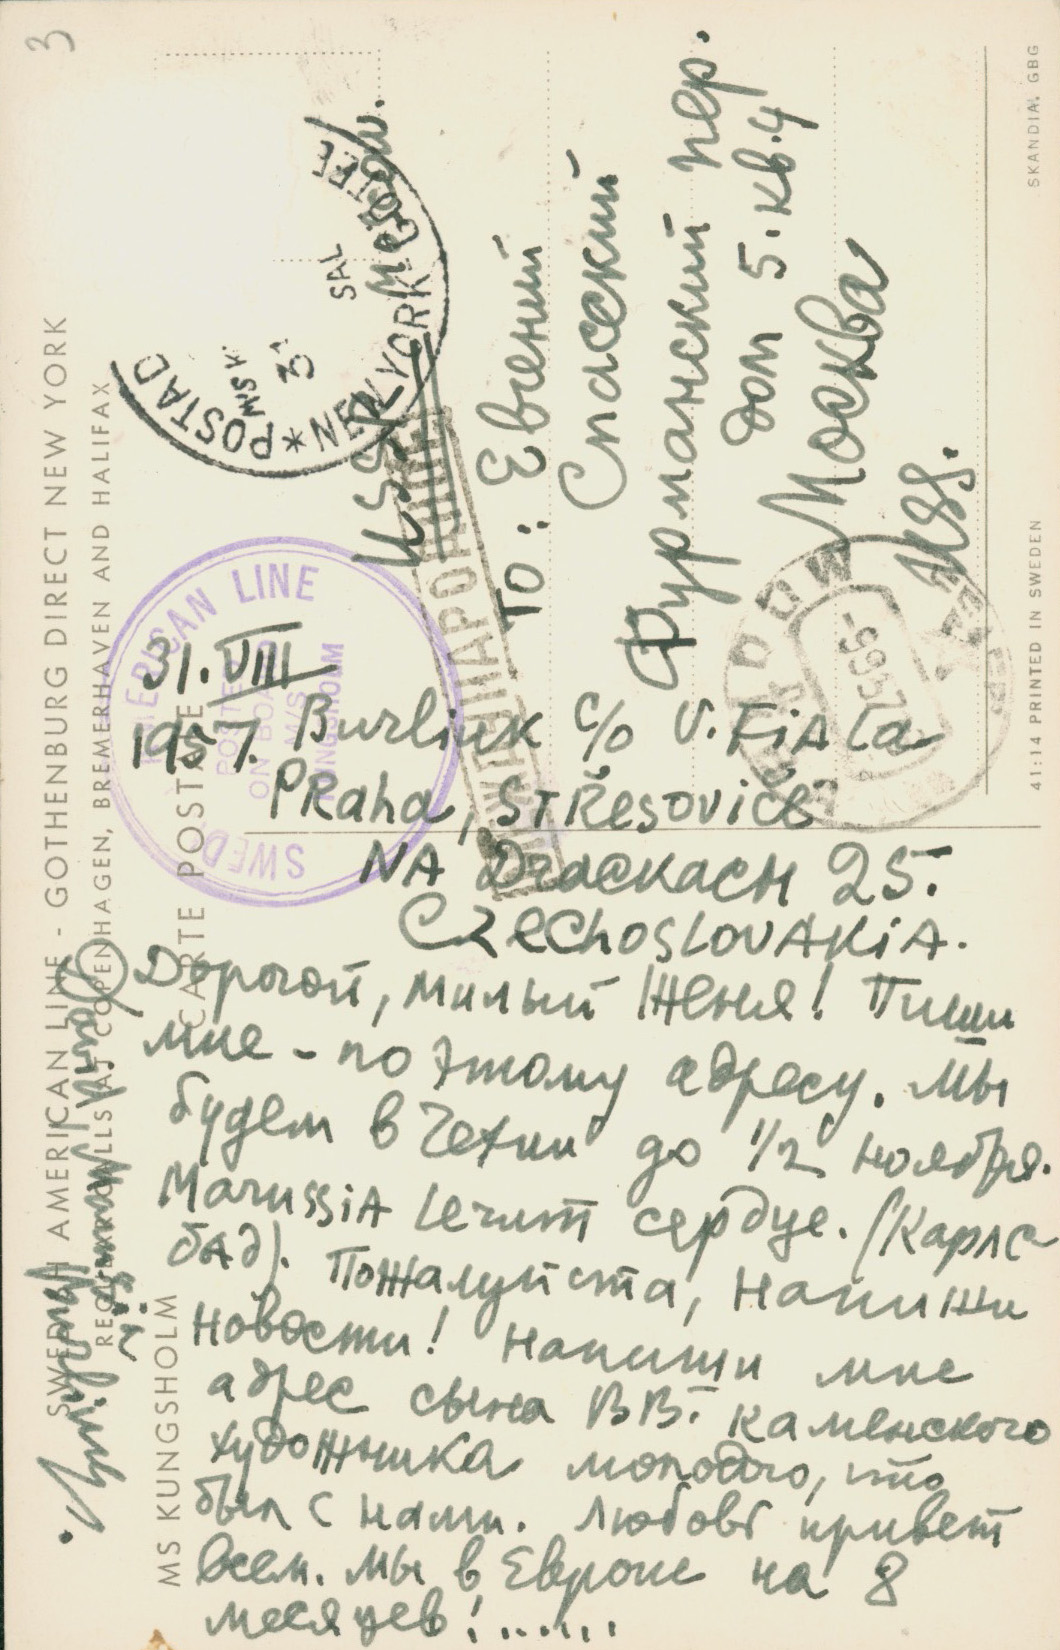 3
SWEDISH AMERICAN LINE - GOTHENBURG DIRECT NEW YORK
REGULAR CALLS AT COPENHAGEN, BREMERHAVEN AND HALIFAX
CARTE POSTALE
MS KUNGSHOLM
POSTAD
NEW YORK GÖTEB
M/S K
SAL
31
SWED AMERICAN LINE
POSTED
ON BOARD
M/S
KUNGSHOLM
USSR Moscow.
To: Евгений
Спасский
Фурманский пер.
дом 5. кв. 4
Москва
USSR.
МОСКВА
31.VIII
1957.
Burliuk c/o V. FiAla
PRaha, STŘesovice
NA DračKACH 25.
CZECHOSLOVAKiA.
Дорогой, милый Женя! Пиши
мне - по этому адресу. Мы
будем в Чехии до 1/2 ноября.
MarussiA лечит сердце. (Карлс
бад). Пожалуйста, напиши
новости! Напиши мне
адрес сына ВВ. Каменского
художника молодого, что
был с нами. Любовь привет
всем. Мы в Европе на 8
месяцев!......
41:14 PRINTED IN SWEDEN
SKANDIA, GBG